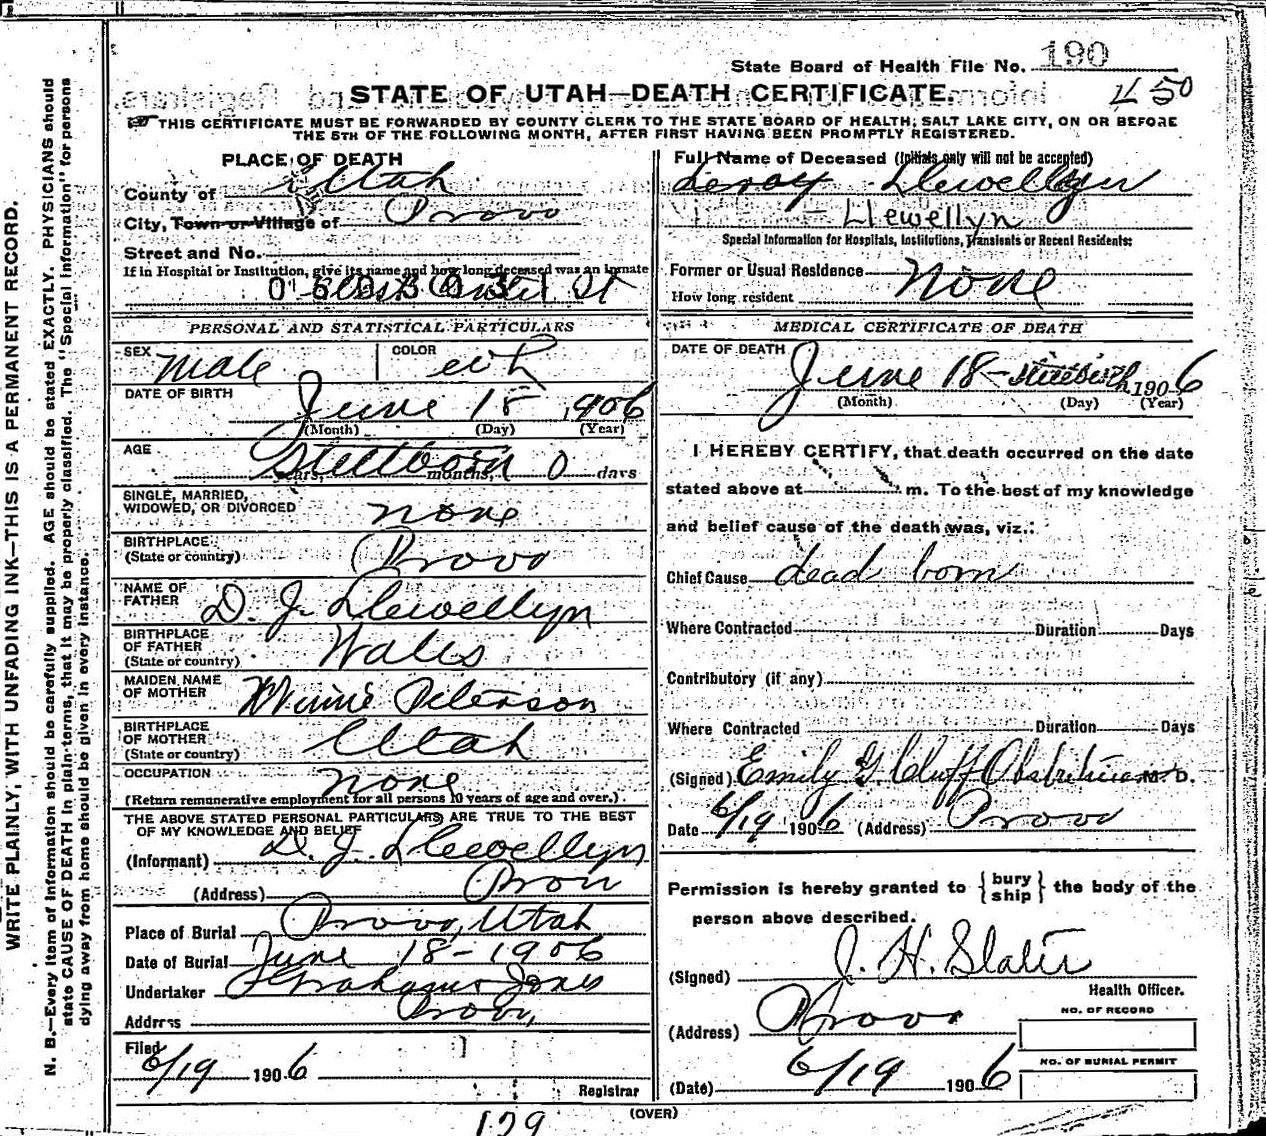 State Board of Health File No. 190
STATE OF UTAH—DEATH CERTIFICATE.
450
THIS CERTIFICATE MUST BE FORWARDED BY COUNTY CLERK TO THE STATE BOARD OF HEALTH, SALT LAKE CITY, ON OR BEFORE
THE 5TH OF THE FOLLOWING MONTH, AFTER FIRST HAVING BEEN PROMPTLY REGISTERED.
PLACE OF DEATH
County of Utah
City, Town or Village of Provo
Street and No.
If in Hospital or Institution, give its name and how long deceased was an inmate
St
PERSONAL AND STATISTICAL PARTICULARS
SEX Male COLOR wh
DATE OF BIRTH June 18 1906
(Month) (Day) (Year)
AGE Stillborn 0
years, months, days
SINGLE, MARRIED,
WIDOWED, OR DIVORCED none
BIRTHPLACE
(State or country) Provo
NAME OF
FATHER D. J. Llewellyn
BIRTHPLACE
OF FATHER
(State or country) Wales
MAIDEN NAME
OF MOTHER Peterson
BIRTHPLACE
OF MOTHER
(State or country) Utah
OCCUPATION none
(Return remunerative employment for all persons 10 years of age and over.)
THE ABOVE STATED PERSONAL PARTICULARS ARE TRUE TO THE BEST
OF MY KNOWLEDGE AND BELIEF
(Informant) D. J. Llewellyn
(Address) Provo
Place of Burial Provo, Utah
Date of Burial June 18-1906
Undertaker Jones
Address Provo,
Filed
6/19 1906
Registrar
Full Name of Deceased (Initials only will not be accepted)
Leroy Llewellyn
- Llewellyn
Special Information for Hospitals, Institutions, Transients or Recent Residents:
Former or Usual Residence None
How long resident
MEDICAL CERTIFICATE OF DEATH
DATE OF DEATH
June 18- stillbirth 1906
(Month) (Day) (Year)
I HEREBY CERTIFY, that death occurred on the date
stated above at m. To the best of my knowledge
and belief cause of the death was, viz.:
Chief Cause dead born
Where Contracted Duration Days
Contributory (if any)
Where Contracted Duration Days
(Signed) Emily G. Cluff M. D.
Date 6/19 1906 (Address) Provo
Permission is hereby granted to {bury ship} the body of the
person above described.
(Signed) J. H. Slater
Health Officer.
(Address) Provo
NO. OF RECORD
NO. OF BURIAL PERMIT
(Date) 6/19 1906
(OVER)
129
WRITE PLAINLY, WITH UNFADING INK—THIS IS A PERMANENT RECORD.
N. B.—Every item of information should be carefully supplied. AGE should be stated EXACTLY. PHYSICIANS should
state CAUSE OF DEATH in plain terms, that it may be properly classified. The "Special Information" for persons
dying away from home should be given in every instance.